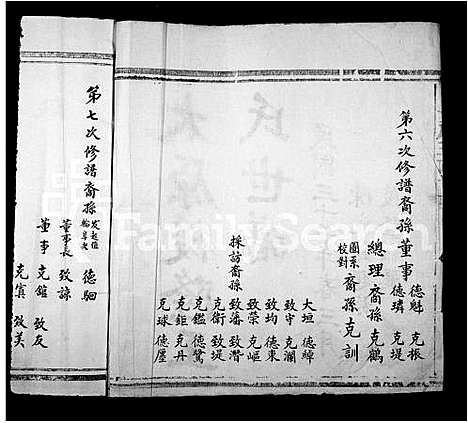 第六次修譜裔孫董事 德魁 克振
德璘 克堤
總理裔孫克鶴
圖系校對 裔孫克訓
採訪裔孫
大垣 德綽
致守 克瀾
致均 德東
致榮 克嶇
致藩 致潛
克衛 致堤
克鑑 德鷺
克鉅 克丹
克球 德屋
第七次修譜裔孫 德駉
董事長 致諒
董事 克錧 致友
克寘 致美
FamilySearch